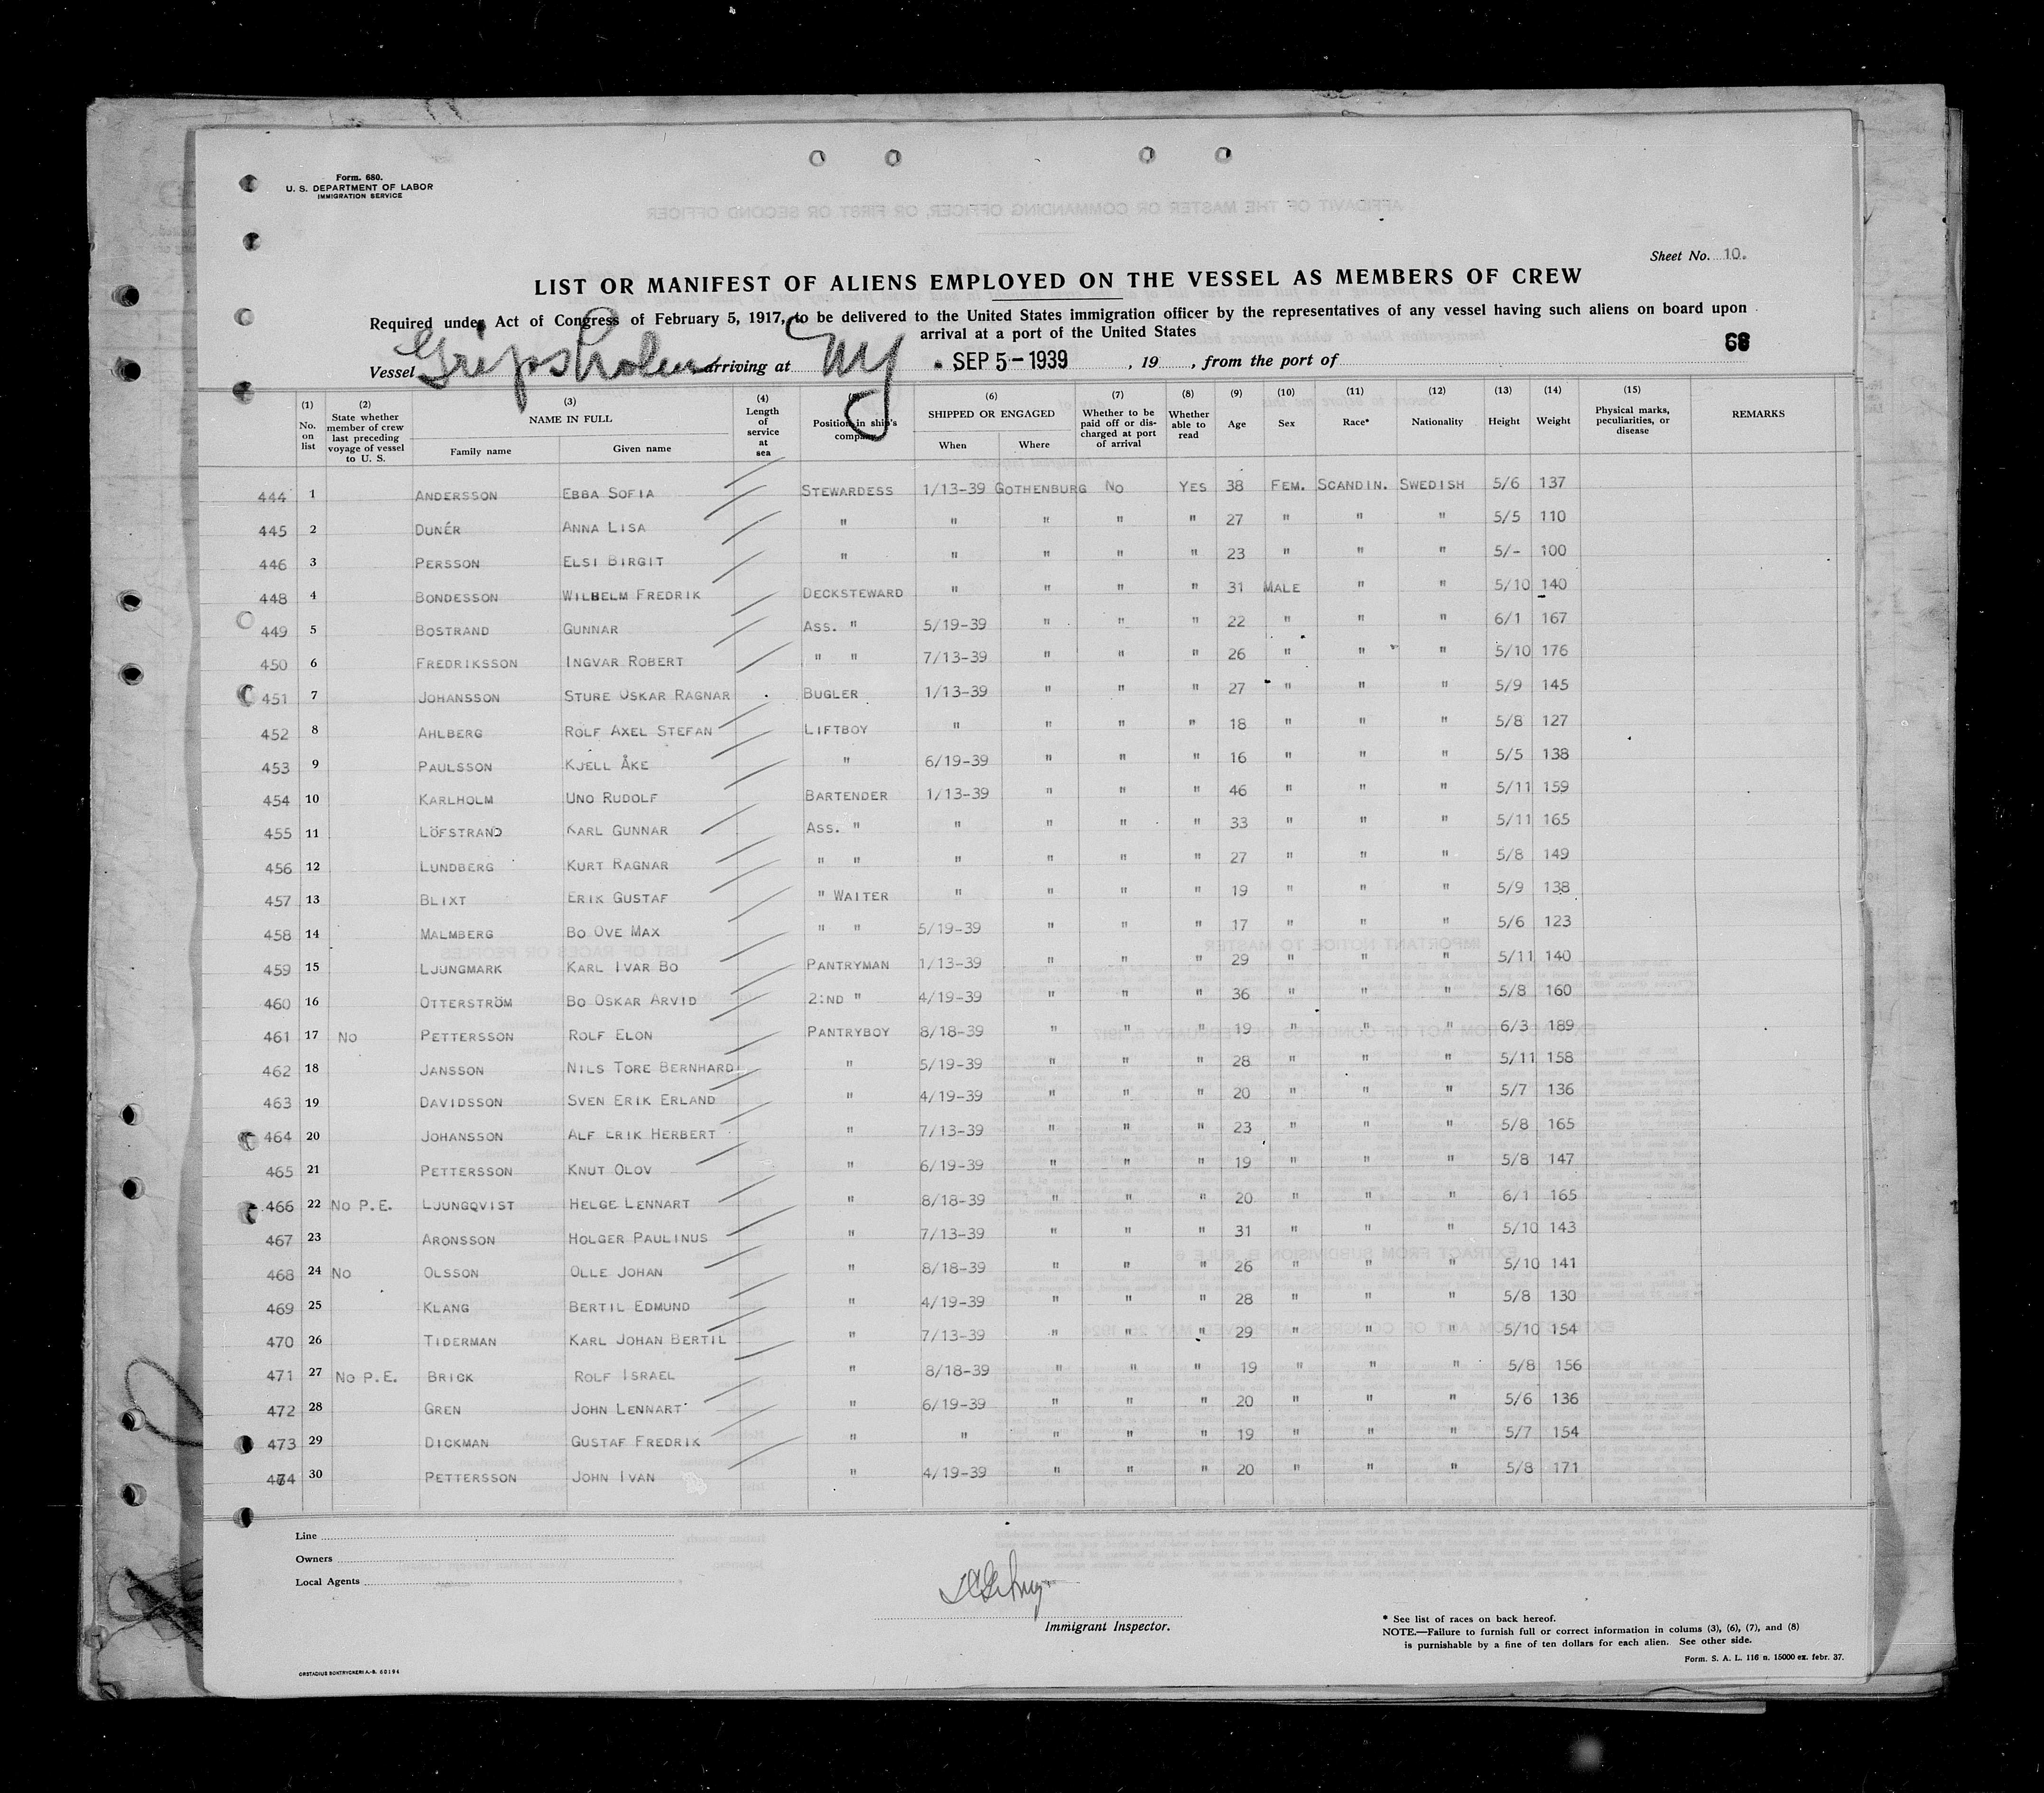 Form. 680.
U. S. DEPARTMENT OF LABOR
IMMIGRATION SERVICE
Sheet No. 10.
LIST OR MANIFEST OF ALIENS EMPLOYED ON THE VESSEL AS MEMBERS OF CREW
Required under Act of Congress of February 5, 1917, to be delivered to the United States immigration officer by the representatives of any vessel having such aliens on board upon
arrival at a port of the United States
68
Vessel Gripsholm arriving at NY . SEP 5-1939 , 19 , from the port of
(1) No. on list (2) State whether member of crew last preceding voyage of vessel to U. S. (3) NAME IN FULL Family name Given name (4) Length of service at sea Position in ship's company (6) SHIPPED OR ENGAGED When Where (7) Whether to be paid off or discharged at port of arrival (8) Whether able to read (9) Age (10) Sex (11) Race* (12) Nationality (13) Height (14) Weight (15) Physical marks, peculiarities, or disease REMARKS
444 1 ANDERSSON EBBA SOFIA STEWARDESS 1/13-39 GOTHENBURG NO YES 38 FEM. SCANDIN. SWEDISH 5/6 137
445 2 DUNÉR ANNA LISA " " " " " 27 " " " 5/5 110
446 3 PERSSON ELSI BIRGIT " " " " " 23 " " " 5/- 100
448 4 BONDESSON WILBELM FREDRIK DECKSTEWARD " " " " 31 MALE " " 5/10 140
449 5 BOSTRAND GUNNAR ASS. " 5/19-39 " " " 22 " " " 6/1 167
450 6 FREDRIKSSON INGVAR ROBERT " " 7/13-39 " " " 26 " " " 5/10 176
451 7 JOHANSSON STURE OSKAR RAGNAR BUGLER 1/13-39 " " " 27 " " " 5/9 145
452 8 AHLBERG ROLF AXEL STEFAN LIFTBOY " " " " 18 " " " 5/8 127
453 9 PAULSSON KJELL ÅKE " 6/19-39 " " " 16 " " " 5/5 138
454 10 KARLHOLM UNO RUDOLF BARTENDER 1/13-39 " " " 46 " " " 5/11 159
455 11 LÖFSTRAND KARL GUNNAR ASS. " " " " " 33 " " " 5/11 165
456 12 LUNDBERG KURT RAGNAR " " " " " " 27 " " " 5/8 149
457 13 BLIXT ERIK GUSTAF " WAITER " " " " 19 " " " 5/9 138
458 14 MALMBERG BO OVE MAX " " 5/19-39 " " " 17 " " " 5/6 123
459 15 LJUNGMARK KARL IVAR BO PANTRYMAN 1/13-39 " " " 29 " " " 5/11 140
460 16 OTTERSTRÖM BO OSKAR ARVID 2:ND " 4/19-39 " " " 36 " " " 5/8 160
461 17 NO PETTERSSON ROLF ELON PANTRYBOY 8/18-39 " " " 19 " " " 6/3 189
462 18 JANSSON NILS TORE BERNHARD " 5/19-39 " " " 28 " " " 5/11 158
463 19 DAVIDSSON SVEN ERIK ERLAND " 4/19-39 " " " 20 " " " 5/7 136
464 20 JOHANSSON ALF ERIK HERBERT " 7/13-39 " " " 23 " " " 5/8 165
465 21 PETTERSSON KNUT OLOV " 6/19-39 " " " 19 " " " 5/8 147
466 22 NO P.E. LJUNGQVIST HELGE LENNART " 8/18-39 " " " 20 " " " 6/1 165
467 23 ARONSSON HOLGER PAULINUS " 7/13-39 " " " 31 " " " 5/10 143
468 24 NO OLSSON OLLE JOHAN " 8/18-39 " " " 26 " " " 5/10 141
469 25 KLANG BERTIL EDMUND " 4/19-39 " " " 28 " " " 5/8 130
470 26 TIDERMAN KARL JOHAN BERTIL " 7/13-39 " " " 29 " " " 5/10 154
471 27 NO P.E. BRICK ROLF ISRAEL " 8/18-39 " " " 19 " " " 5/8 156
472 28 GREN JOHN LENNART " 6/19-39 " " " 20 " " " 5/6 136
473 29 DICKMAN GUSTAF FREDRIK " " " " " 19 " " " 5/7 154
474 30 PETTERSSON JOHN IVAN " 4/19-39 " " " 20 " " " 5/8 171
Line
Owners
Local Agents
Immigrant Inspector.
* See list of races on back hereof.
NOTE.—Failure to furnish full or correct information in colums (3), (6), (7), and (8)
is purnishable by a fine of ten dollars for each alien. See other side.
Form. S. A. L. 116 n. 15000 ex. febr. 37.
ORSTADIUS BOKTRYCKERI A.-B. 60194